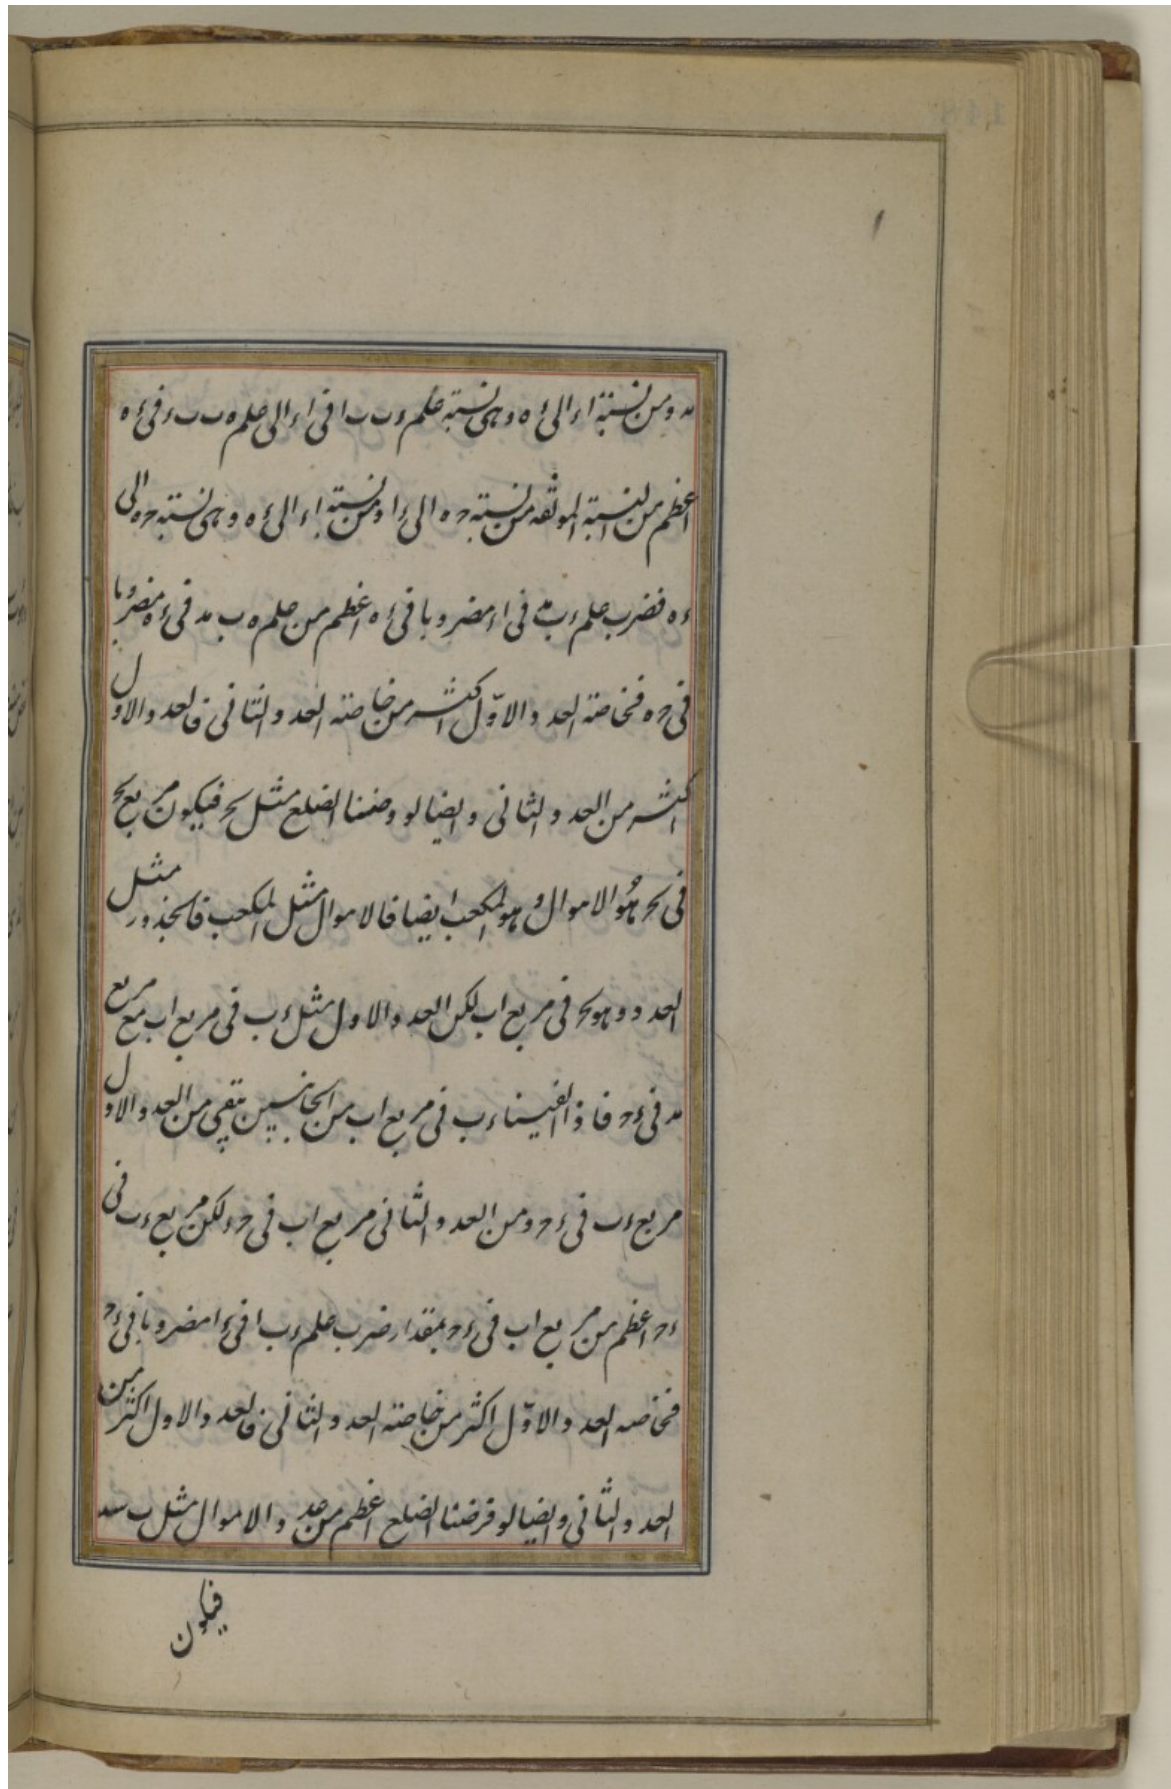 ومن نسبة اء الى ءه وهى نسبة علم ءب ب ا فى اء الى علم ه ب ب ء فى ءه
اعظم من النسبة المولفه من نسبة حه الى ءا ومن نسبة اء الى ءه وهى نسبة حه الى
ءه فضرب علم ءب فى اء مضروبا فى ءه اعظم من علم ه ب فى ءه مضروبا
فى حه فخاصته العدد الاوّل اكثر من خاصته العدد الثانى فالعدد الاول
اكثر من العدد الثانى وايضا لو وضعنا الضلع مثل بح فيكون مربع بح
فى بح هو الاموال وهو المكعب ايضا فالاموال مثل المكعب فالجذور مثل
العدد وهو بح فى مربع اب لكن العدد الاول مثل ءب فى مربع اب مع مربع
فى ءح فاذا القينا ءب فى مربع اب من الجانبين يبقى من العدد الاول
مربع ءب فى ءح ومن العدد الثانى مربع اب فى حء لكن مربع ءب فى
ءح اعظم من مربع اب فى ءح بمقدار ضرب علم ءب ا فى ءا مضروبا فى ءح
فخاصه العدد الاوّل اكثر من خاصته العدد الثانى فالعدد الاول اكثر من
العدد الثانى وايضا لو فرضنا الضلع اعظم من حد والاموال مثل ب
فيكون